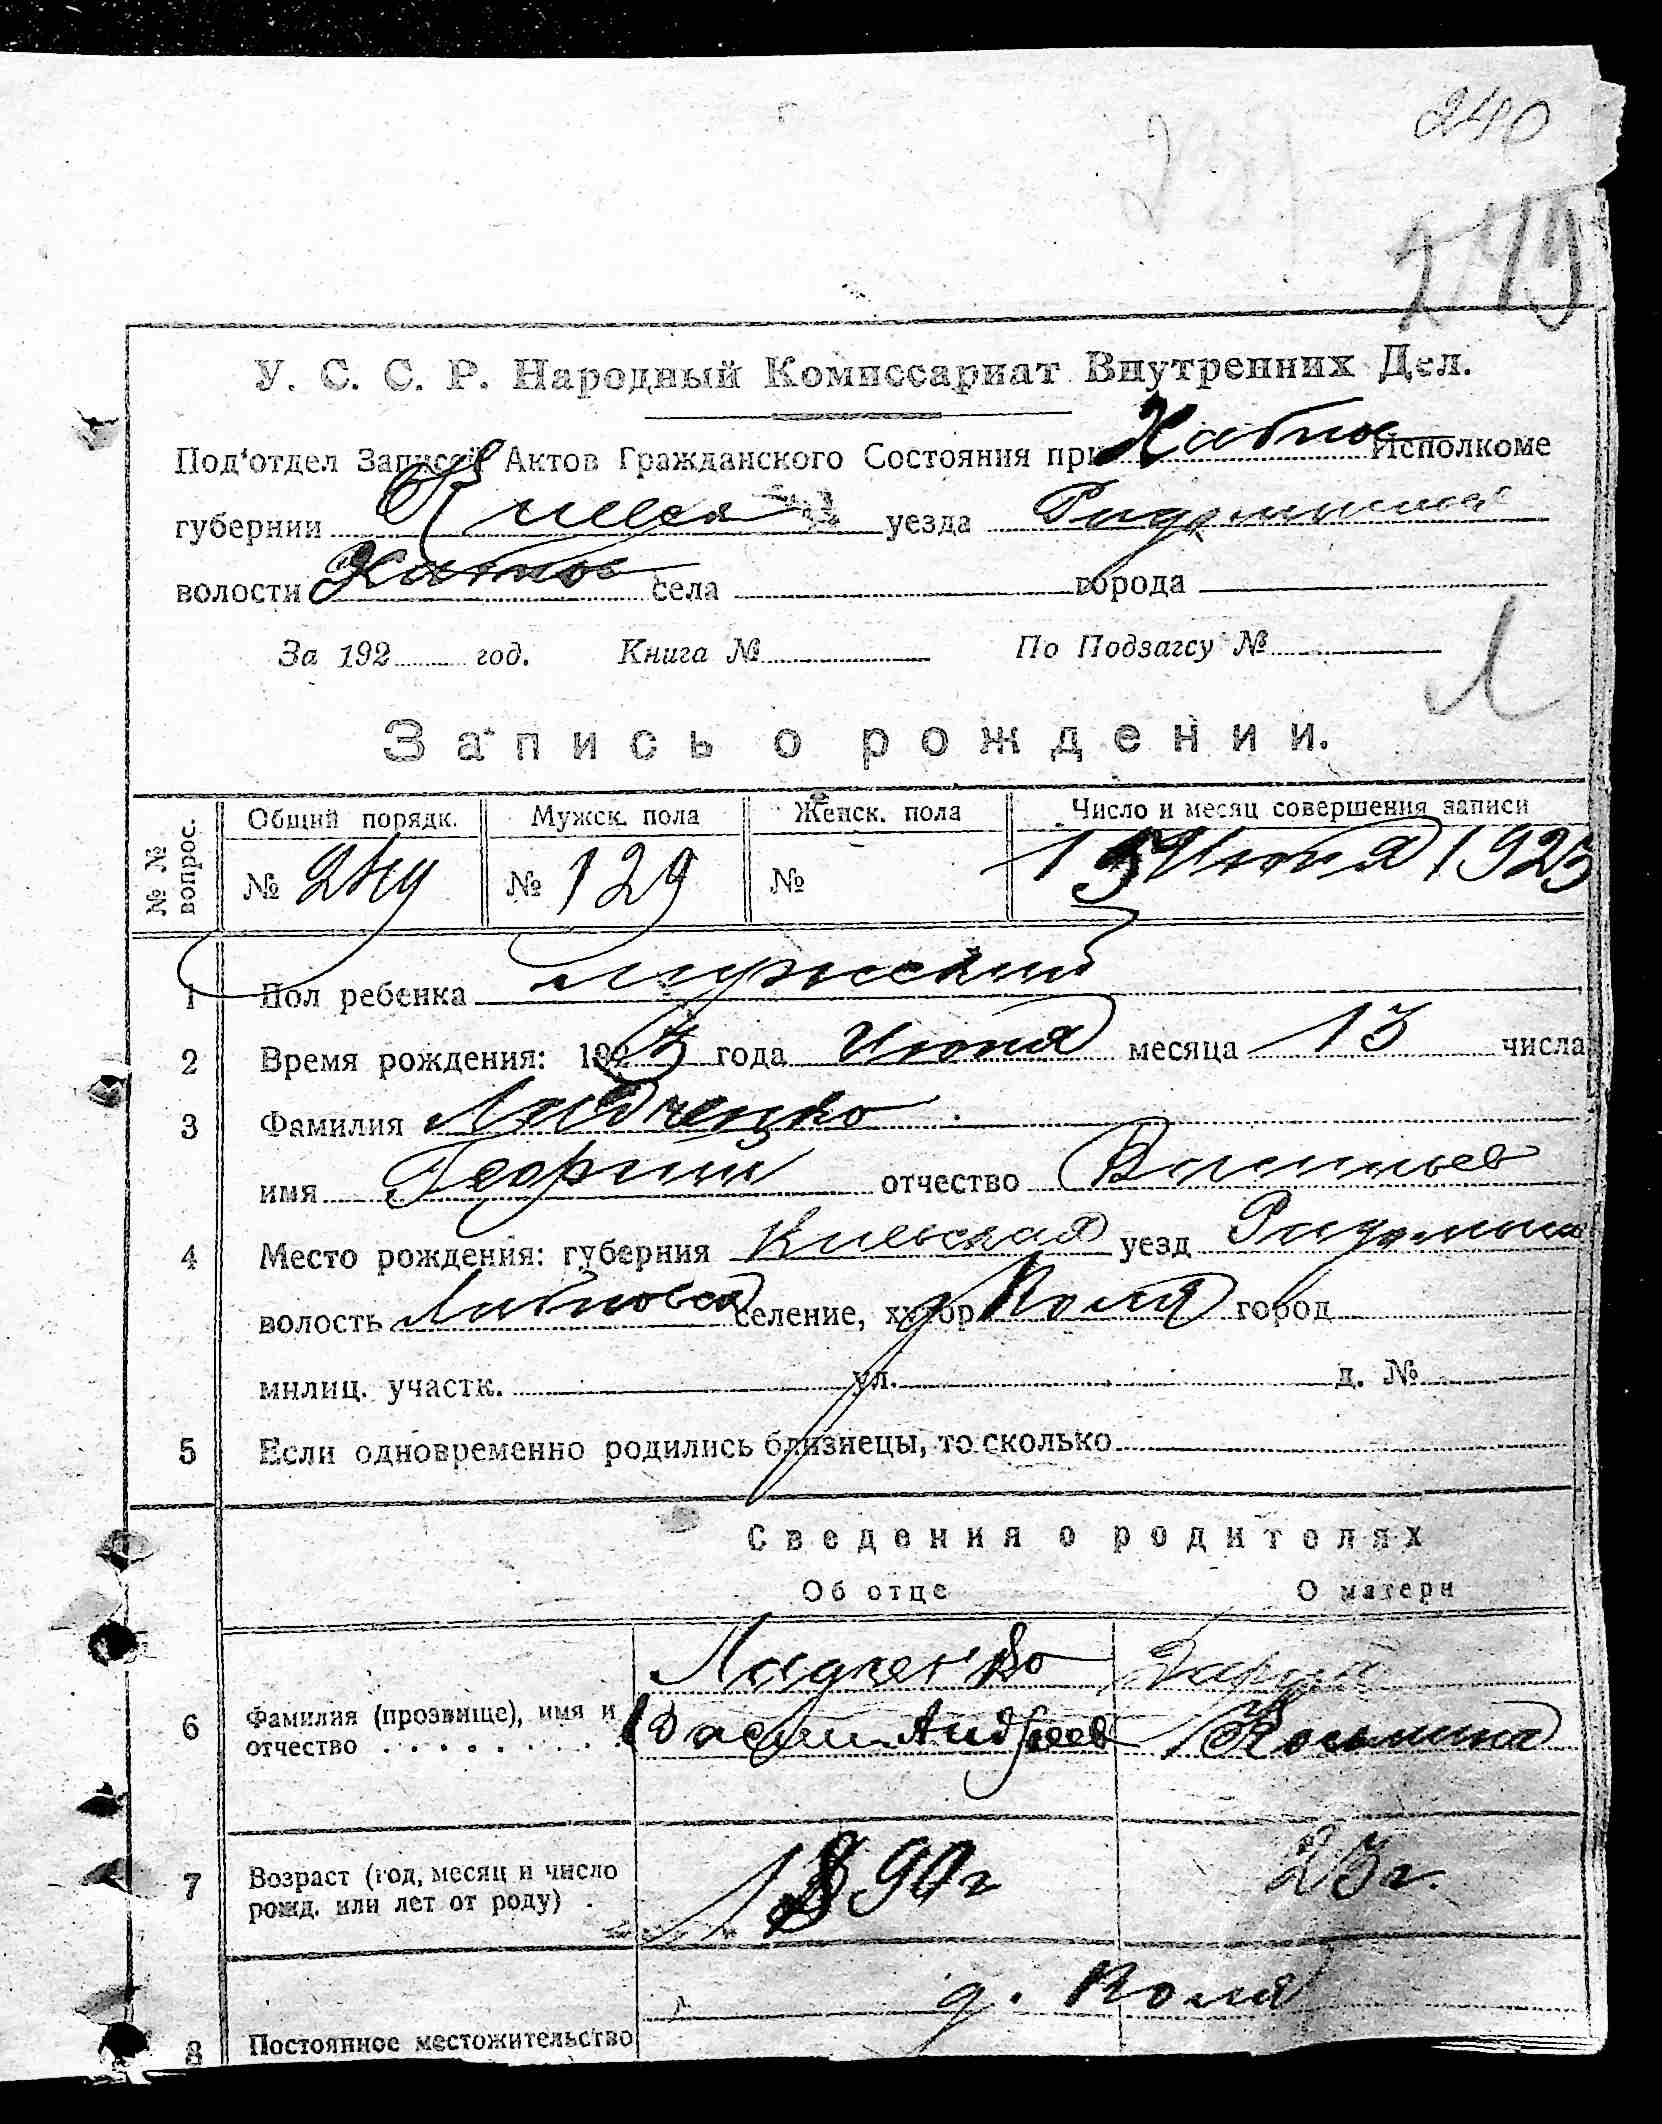 240
249
У. С. С. Р. Народный Комиссариат Внутренних Дел.
Под'отдел Записей Актов Гражданского Состояния при Хабном Исполкоме
губернии Киевск уезда Радомысл
волости Хабное села города
За 192 год. Книга № По Подзагсу №
Запись о рождении.
№ № вопрос. Общий порядк. Мужск. пола Женск. пола Число и месяц совершения записи
№ 249 № 129 № 15 Июня 1923
1 Пол ребенка мужский
2 Время рождения: 1923 года Июня месяца 13 числа
3 Фамилия Лядченко
имя Георгий отчество Васильев
4 Место рождения: губерния Киевская уезд Радомысл
волость Хабновск селение, хутор Поля город
милиц. участк. ул. д. №
5 Если одновременно родились близнецы, то сколько
Сведения о родителях
Об отце О матери
Лядченко Дария
6 Фамилия (прозвище), имя и отчество Васили Андреев Козьмина
7 Возраст (год, месяц и число рожд. или лет от роду) 1890 г 23 г.
д. Поля
8 Постоянное местожительство